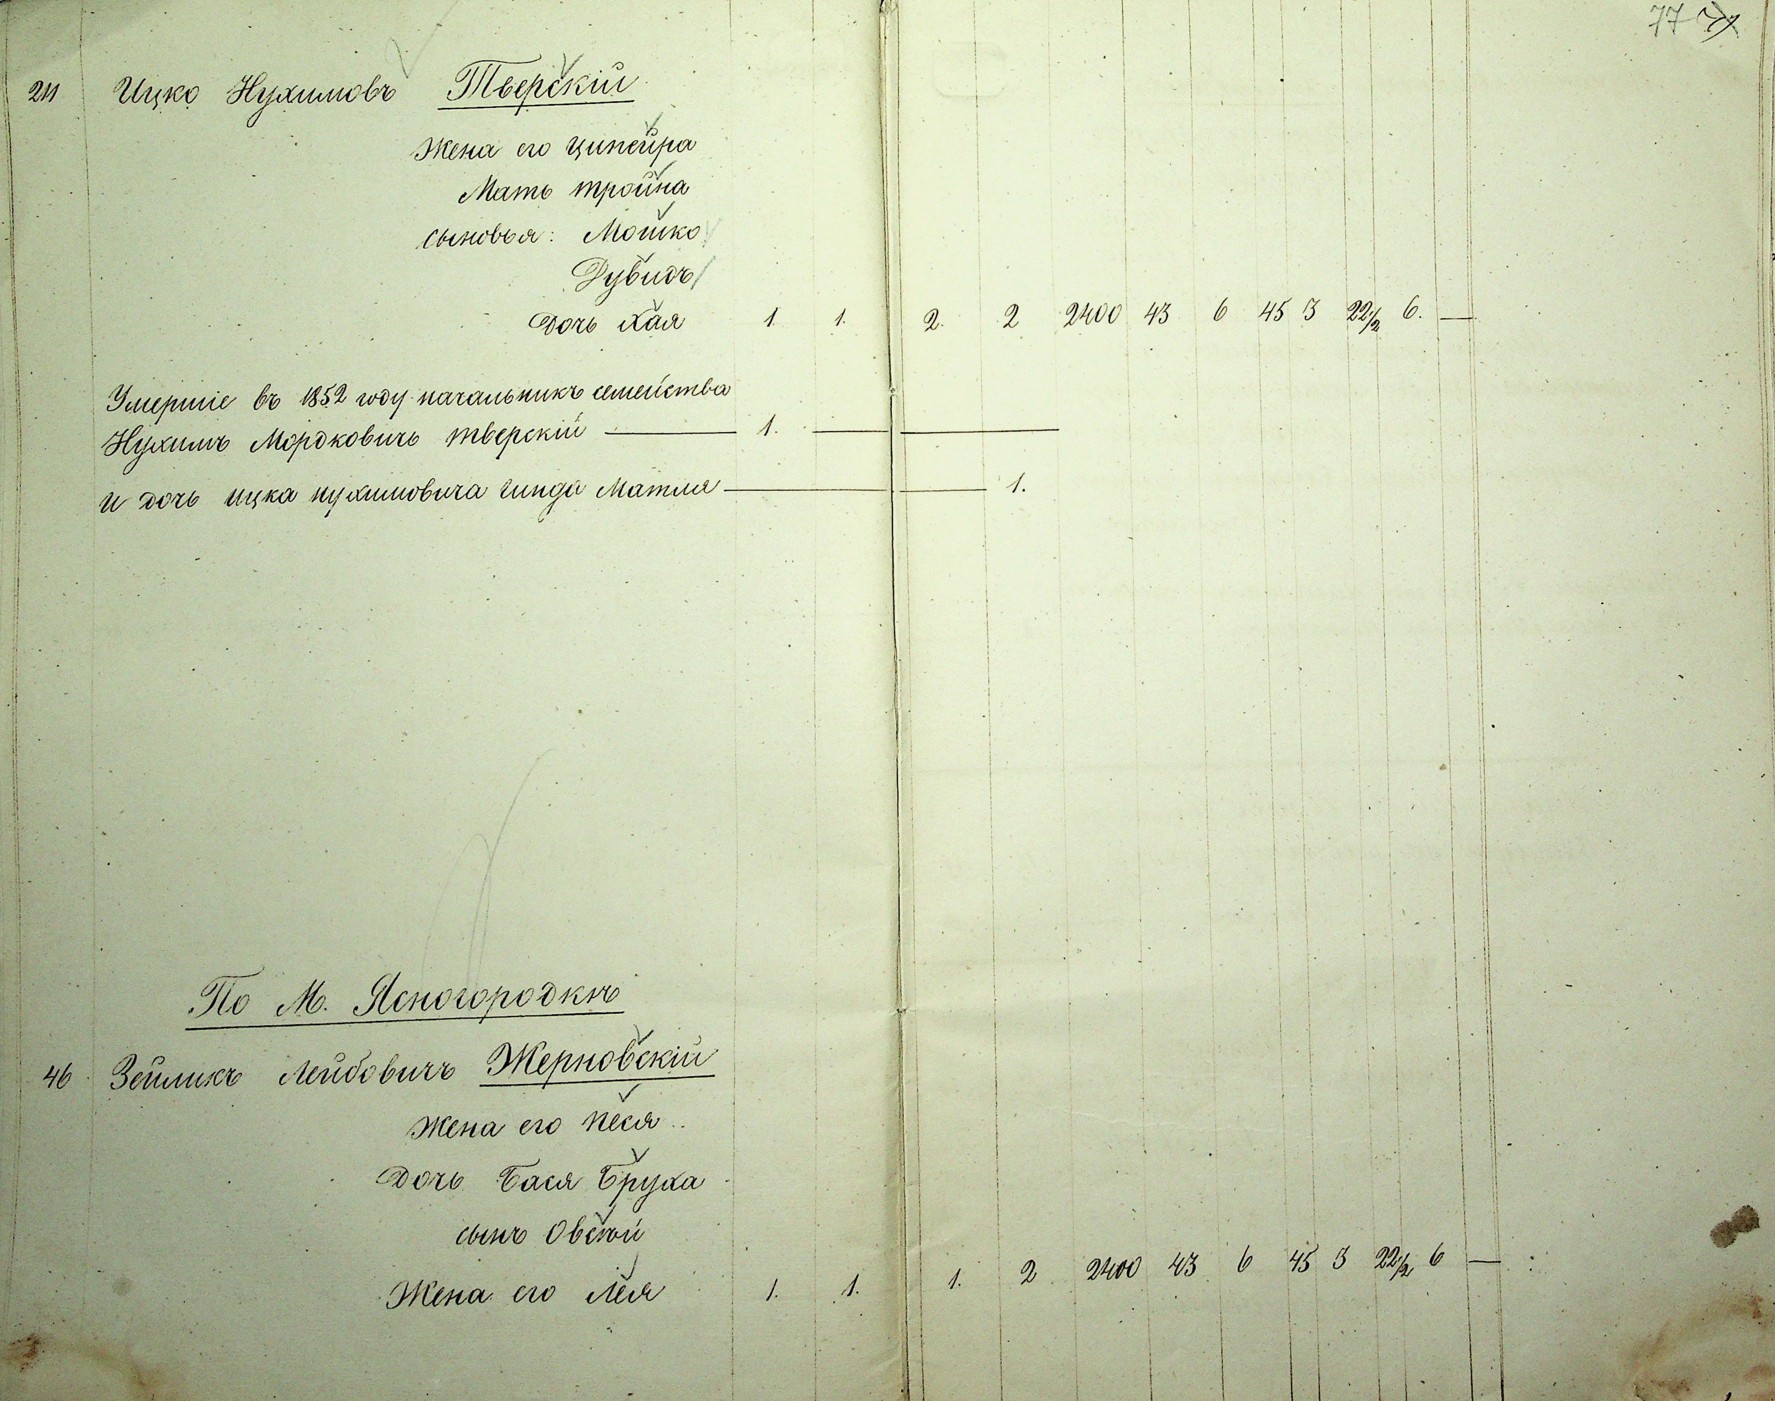 77
211 Ицко Нухимовъ Тверскій
Жена его Ципейра
Мать тройна
сыновья: Мошко
Дувидъ
Дочь Хая 1. 1. 2. 2 2400 43 6 45 3 22½ 6. —
Умершіе въ 1852 году начальникъ семейства
Нухимъ Мордковичъ тверскій — 1. —
и дочь ицка нухимовича гинда Матля — 1.
По М. Ясногородкѣ
46 Зейликъ Лейбовичъ Жерновскій
Жена его песя
Дочь Бася Бруха
сынъ Овсей
Жена его Лея 1. 1. 1. 2 2400 43 6 45 3 22½ 6 —